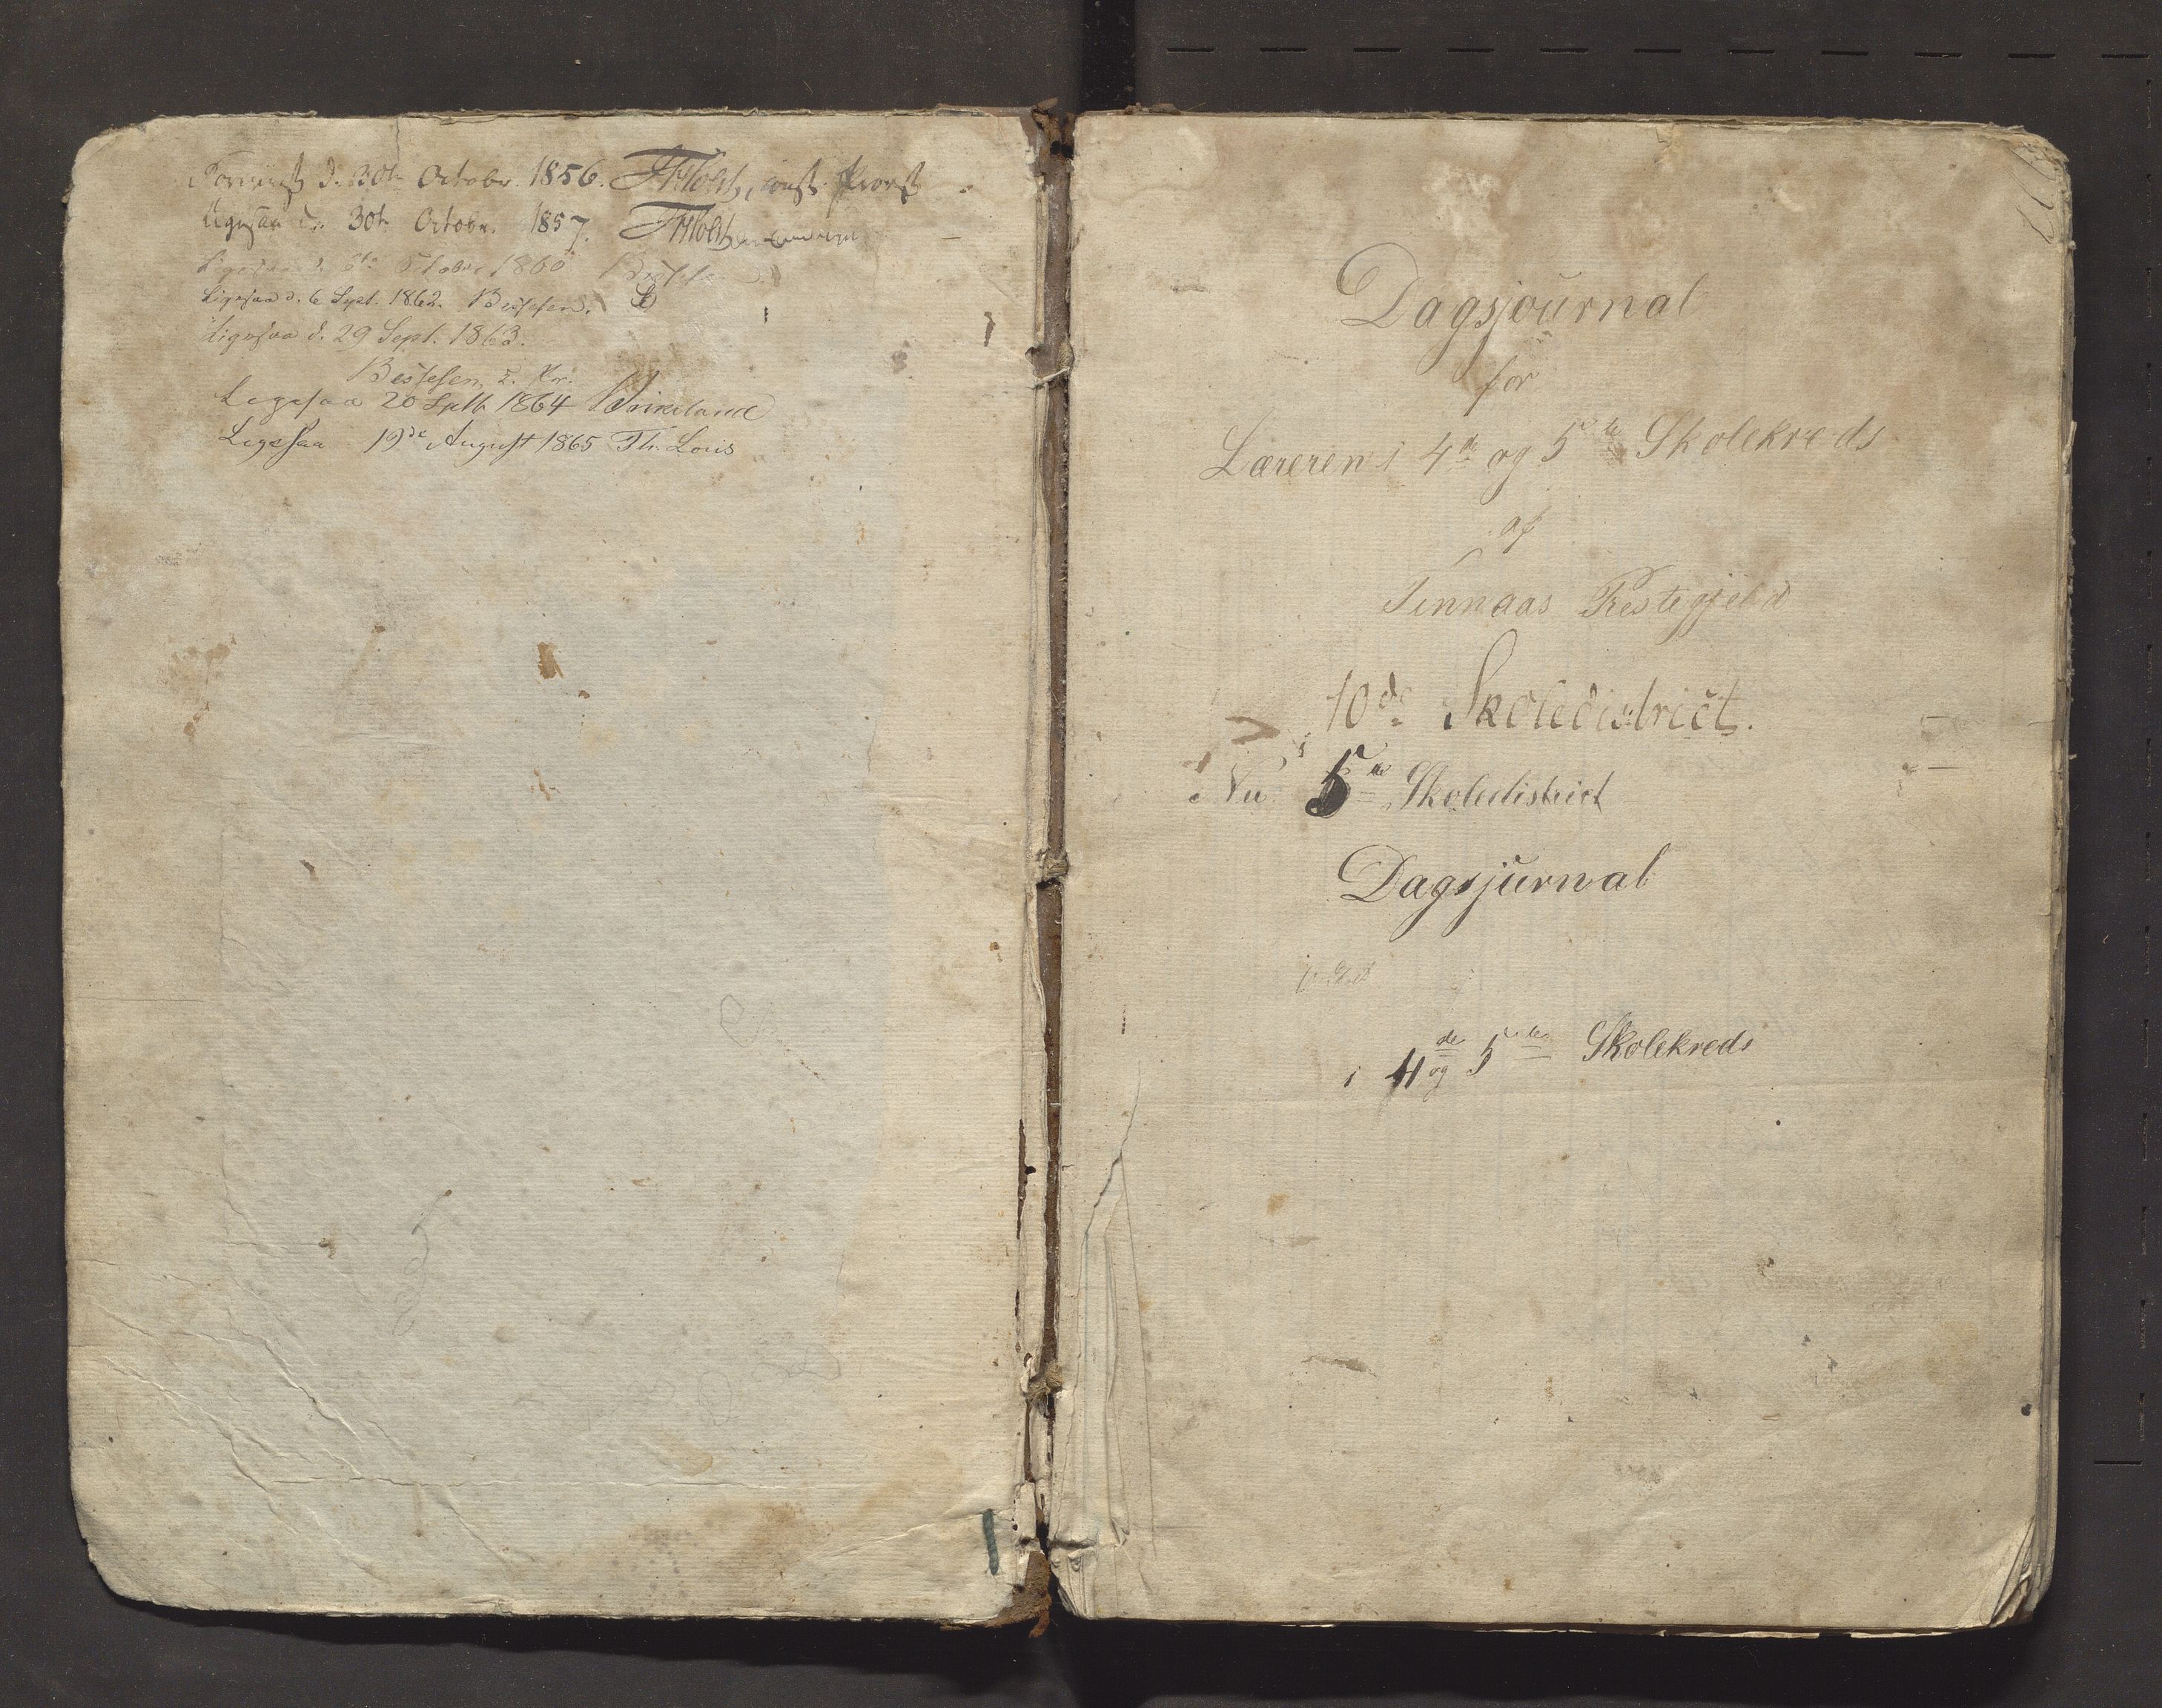 d. 30te Octobr. 1856. const. Provst
Ligesaa d. 30te Octobr. 1857.
Ligesaa d. 6te Octobr 1860
Ligesaa d. 6 Sept. 1862. Bessesen.
Ligesaa d. 29 Sept. 1863.
Bessesen
Ligesaa 20 Septb 1864
Ligesaa 19de August 1865 Th. Lous
Dagsjournal
for
Læreren i 4de og 5te Skolekreds
af
Prestegjeld
10de Skoledistrict.
Nu 5te Skoledistrict
Dagsjurnal
i 4de og 5te Skolekreds